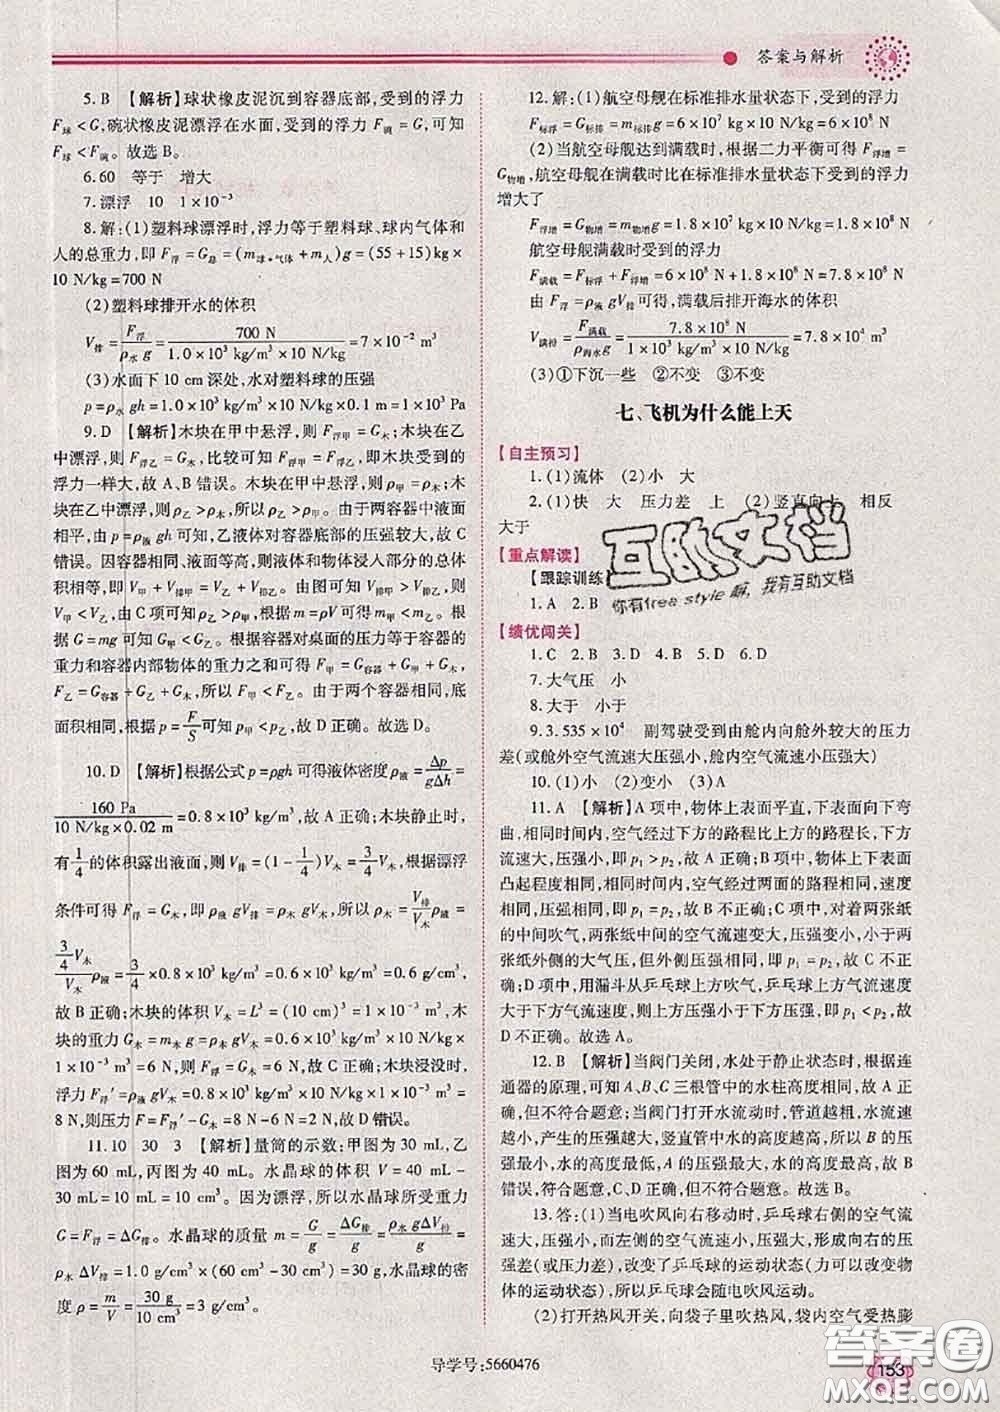 答案与解析
5.B 【解析】球状橡皮泥沉到容器底部,受到的浮力
F球<G,碗状橡皮泥漂浮在水面,受到的浮力 F碗=G,可知
F球<F碗。故选 B。
6.60 等于 增大
7.漂浮 10 1×10⁻³
8.解:(1)塑料球漂浮时,浮力等于塑料球、球内气体和
人的总重力,即 F浮=G总=(m球+气体+m人)g=(55+15)kg×
10 N/kg=700 N
(2)塑料球排开水的体积
V排=F浮/ρ水g=700 N/1.0×10³ kg/m³×10 N/kg=7×10⁻² m³
(3)水面下 10 cm 深处,水对塑料球的压强
p=ρ水gh=1.0×10³ kg/m³×10 N/kg×0.1 m=1×10³ Pa
9.D 【解析】木块在甲中悬浮,则 F浮甲=G木;木块在乙
中漂浮,则 F浮乙=G木,比较可知 F浮甲=F浮乙,即木块受到的
浮力一样大,故 A、B 错误。木块在甲中悬浮,则 ρ甲=ρ木;木
块在乙中漂浮,则 ρ乙>ρ木,所以 ρ乙>ρ甲。由于两容器中液面
相平,由 p=ρ液gh 可知,乙液体对容器底部的压强较大,故 C
错误。因容器相同、液面等高,则液体和物体浸入部分的总体
积相等,即 V甲+V排甲=V乙+V排乙。由图可知 V排甲>V排乙,
所以 V甲<V乙,由 C 项可知 ρ乙>ρ甲,根据 m=ρV 可得 m甲<m乙。根
据 G=mg 可知 G甲<G乙。根据容器对桌面的压力等于容器的
重力和容器内部物体的重力之和可得 F甲=G容器+G甲+G木,
F乙=G容器+G乙+G木,所以 F甲<F乙。由于两个容器相同,底
面积相同,根据 p=F/S 可知 p甲<p乙,故 D 正确。故选 D。
10.D 【解析】根据公式 p=ρgh 可得液体密度 ρ液=Δp/gΔh=
160 Pa/10 N/kg×0.02 m=0.8×10³ kg/m³,故 A 正确;木块静止时,
有1/4的体积露出液面,则 V排=(1-1/4)V木=3/4V木,根据漂浮
条件可得 F浮=G木,即 ρ液gV排=ρ木gV木,所以 ρ木=V排/V木ρ液=
3/4V木/V木ρ液=3/4×0.8×10³ kg/m³=0.6×10³ kg/m³=0.6 g/cm³,
故 B 正确;木块的体积 V木=L³=(10 cm)³=1×10⁻³ m³,木
块的重力 G木=m木g=ρ木gV木=0.6×10³ kg/m³×10 N/kg×
1×10⁻³ m³=6 N,则 F浮=G木=6 N,故 C 正确;木块浸没时,
浮力 F浮′=ρ液gV木=0.8×10³ kg/m³×10 N/kg×1×10⁻³ m³=
8 N,则压力 F=F浮′-G木=8 N-6 N=2 N,故 D 错误。
11.10 30 3 【解析】量筒的示数:甲图为 30 mL,乙
图为 60 mL,丙图为 40 mL。水晶球的体积 V=40 mL-
30 mL=10 mL=10 cm³。因为漂浮,所以水晶球所受重力
G=F浮=ΔG排;水晶球的质量 m=G/g=ΔG排/g=ρ水gΔV排/g=
ρ水ΔV排=1.0 g/cm³×(60 cm³-30 cm³)=30 g,水晶球的密
度 ρ=m/V=30 g/10 cm³=3 g/cm³。
12.解:(1)航空母舰在标准排水量状态下,受到的浮力
F标浮=G标排=m标排g=6×10⁷ kg×10 N/kg=6×10⁸ N
(2)当航空母舰达到满载时,根据二力平衡可得 F浮增=
G物增,航空母舰在满载时比在标准排水量状态下受到的浮力
增大了
F浮增=G物增=m物增g=1.8×10⁷ kg×10 N/kg=1.8×10⁸ N
航空母舰满载时受到的浮力
F满载=F标浮+F浮增=6×10⁸ N+1.8×10⁸ N=7.8×10⁸ N
由 F浮=ρ液gV排可得,满载后排开海水的体积
V满排=F满载/ρ海水g=7.8×10⁸ N/1×10³ kg/m³×10 N/kg=7.8×10⁴ m³
(3)①下沉一些 ②不变 ③不变
七、飞机为什么能上天
【自主预习】
1.(1)流体 (2)小 大
2.(1)快 大 压力差 上 (2)竖直向上 相反
大于
【重点解读】
【跟踪训练
1.A 2.B
【绩优闯关】
1.C 2.B 3.D 4.B 5.D 6.D
7.大气压 小
8.大于 小于
9.3.535×10⁴ 副驾驶受到由舱内向舱外较大的压力
差(或舱外空气流速大压强小,舱内空气流速小压强大)
10.(1)小 (2)变小 (3)A
11.A 【解析】A 项中,物体上表面平直,下表面向下弯
曲,相同时间内,空气经过下方的路程比上方的路程长,下方
流速大,压强小,即 p₁>p₂,故 A 正确;B 项中,物体上下表面
凸起程度相同,相同时间内,空气经过两面的路程相同,速度
相同,压强相同,即 p₁=p₂,故 B 不正确;C 项中,对着两张纸
的中间吹气,两张纸中间的空气流速变大,压强变小,小于两
张纸外侧的大气压,但外侧压强相同,即 p₁=p₂,故 C 不正
确;D 项中,用漏斗从乒乓球上方吹气,乒乓球上方的空气流
速大于下方流速,则上方压强小于下方压强,即 p₁<p₂,故
D 不正确。故选 A。
12.B 【解析】当阀门关闭,水处于静止状态时,根据连
通器的原理,可知 A、B、C 三根管中的水柱高度相同,故
不符合题意;当阀门打开水流动时,管道越粗,水流速
越小,产生的压强越大,竖直管中水的高度越高,所以 B 的压
强最小,水的高度最低;A 的压强最大,水的高度最高,故 B
错误,符合题意,C、D 正确,不符合题意。故选 B。
13.答:(1)当电吹风向右移动时,乒乓球右侧的空气流
速大,压强小,而左侧的空气流速小,压强大,形成向右的压
强差(或压力差),改变了乒乓球的运动状态(力可以改变物
体的运动状态),所以乒乓球会随电吹风运动。
(2)打开热风开关,向袋子里吹热风,袋内空气受热膨
互助文档
你有free style 嘛,我有互助文档
导学号:5660476
153
答案圈
MXQE.COM